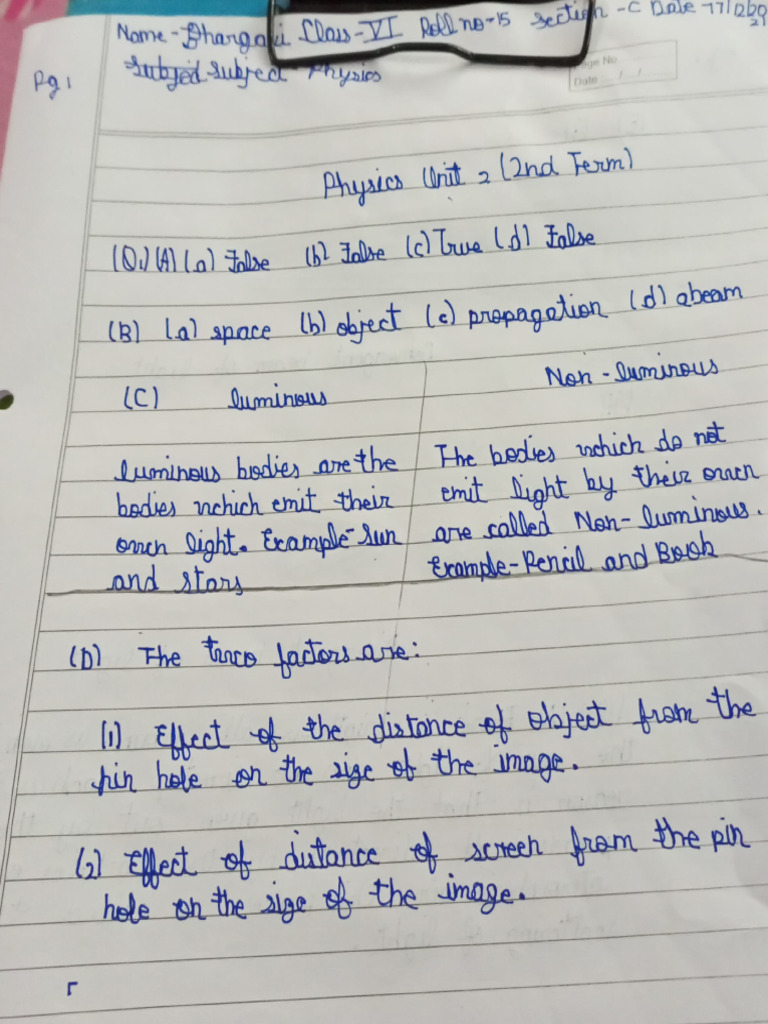 Name-Bhargavi Class-VI Roll no-15 Section-C Date-17/12/20
21
Subject Physics
Page No
Date / /
Pg 1
Physics Unit 2 (2nd Term)
(Q.) (A) (a) False (b) False (c) True (d) False
(B) (a) space (b) object (c) propagation (d) abeam
(C) luminous Non-luminous
luminous bodies are the
bodies which emit their
own light. Example-Sun
and stars
The bodies which do not
emit light by their own
are called Non-luminous.
Example-Pencil and Book
(D) The two factors are:
(1) Effect of the distance of object from the
pin hole on the size of the image.
(2) Effect of distance of screen from the pin
hole on the size of the image.